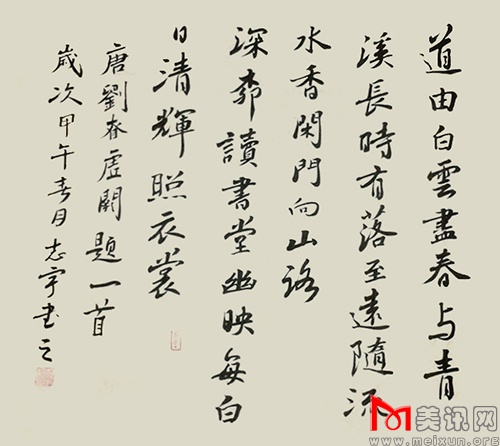 道由白雲盡春与青
溪長時有落至遠隨流
水香閑門向山路
深柳讀書堂幽映每白
日清輝照衣裳
唐劉眘虛闕題一首
歲次甲午春月志宇書之
美讯网
www.meixun.org